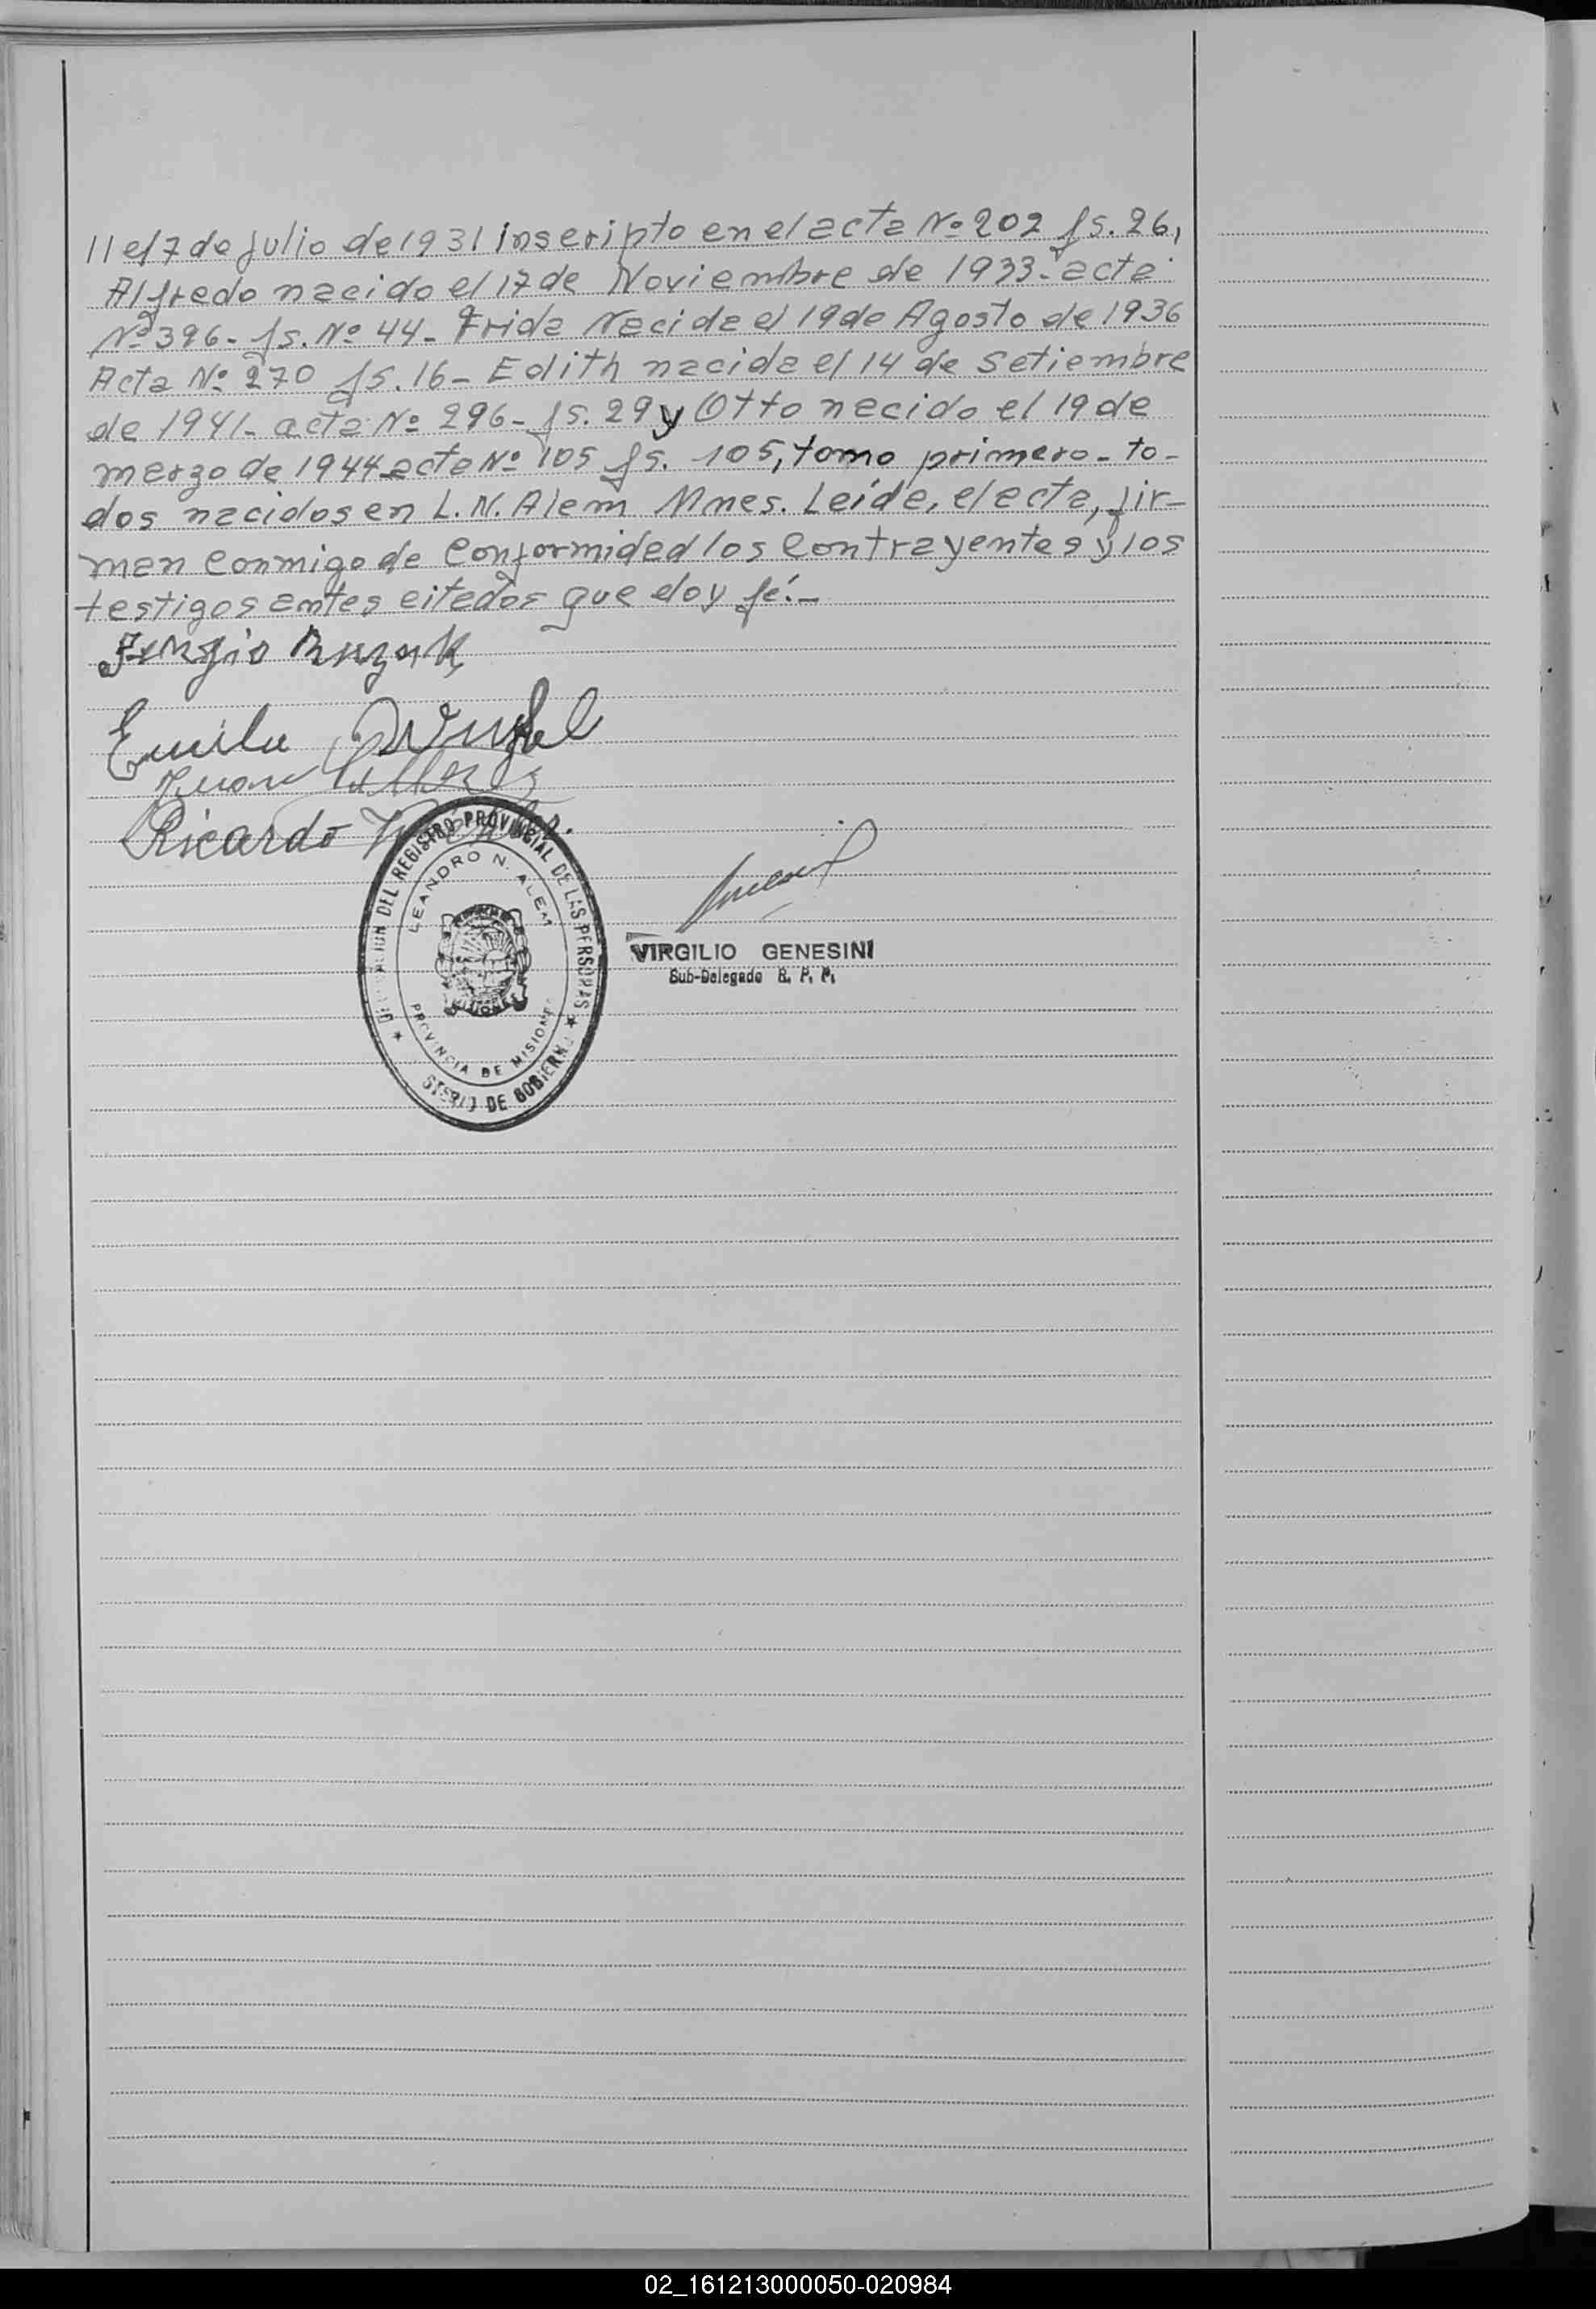 11 el 7 de julio de 1931 inscripto en el acta Nº 202 fs. 26,
Alfredo nacido el 17 de Noviembre de 1933- acta
Nº 396- fs. Nº 44- Frida Nacida el 19 de Agosto de 1936
Acta Nº 270 fs. 16- Edith nacida el 14 de Setiembre
de 1941- acta Nº 296- fs. 29 y Otto nacido el 19 de
marzo de 1944 acta Nº 105 fs. 105, tomo primero- to-
dos nacidos en L. N. Alem Mnes. Leída, el acta, fir-
man conmigo de conformidad los contrayentes y los
testigos antes citados que doy fé.-
Emila
Juan
Ricardo
DEL REGISTRO PROVINCIAL DE LAS PERSONAS
LEANDRO N. ALEM
PROVINCIA DE MISIONES
DE GOBIERNO
VIRGILIO GENESINI
Sub-Delegado R. P. P.
02_161213000050-020984